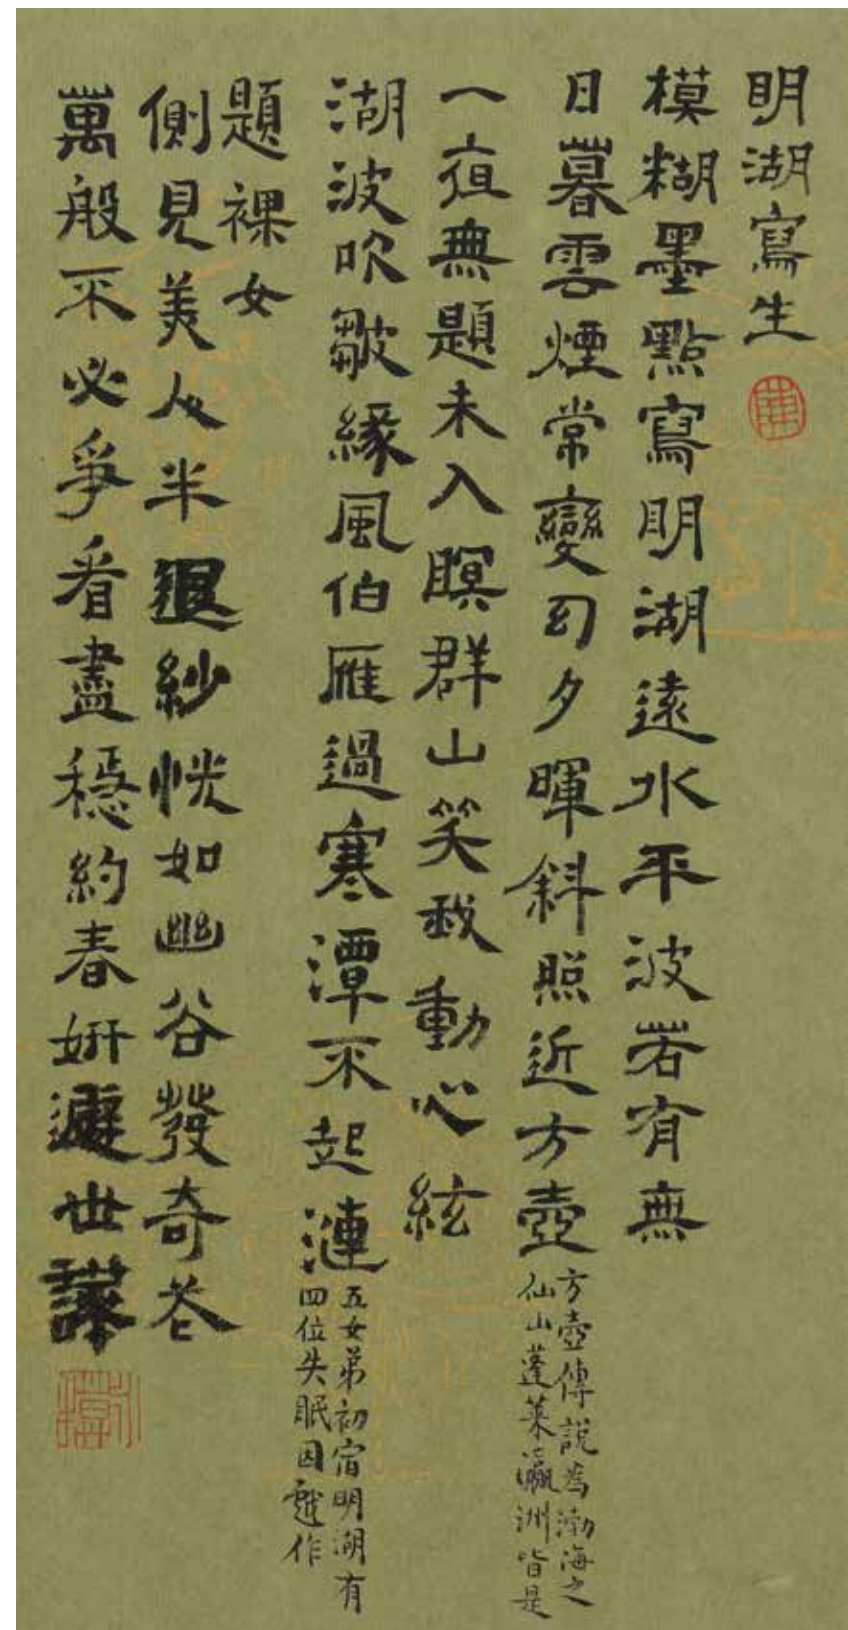 明湖寫生
模糊墨點寫明湖遠水平波若有無
日暮雲煙常變幻夕暉斜照近方壺
方壺傳說為渤海之
仙山蓬萊瀛洲皆是
一夜無題未入瞑群山笑我動心絃
湖波吹皺緣風伯雁過寒潭不起漣
五女弟初宿明湖有
四位失眠因戲作
題裸女
側見美人半退紗恍如幽谷發奇花
萬般不必爭看盡穩約春妍避世譁